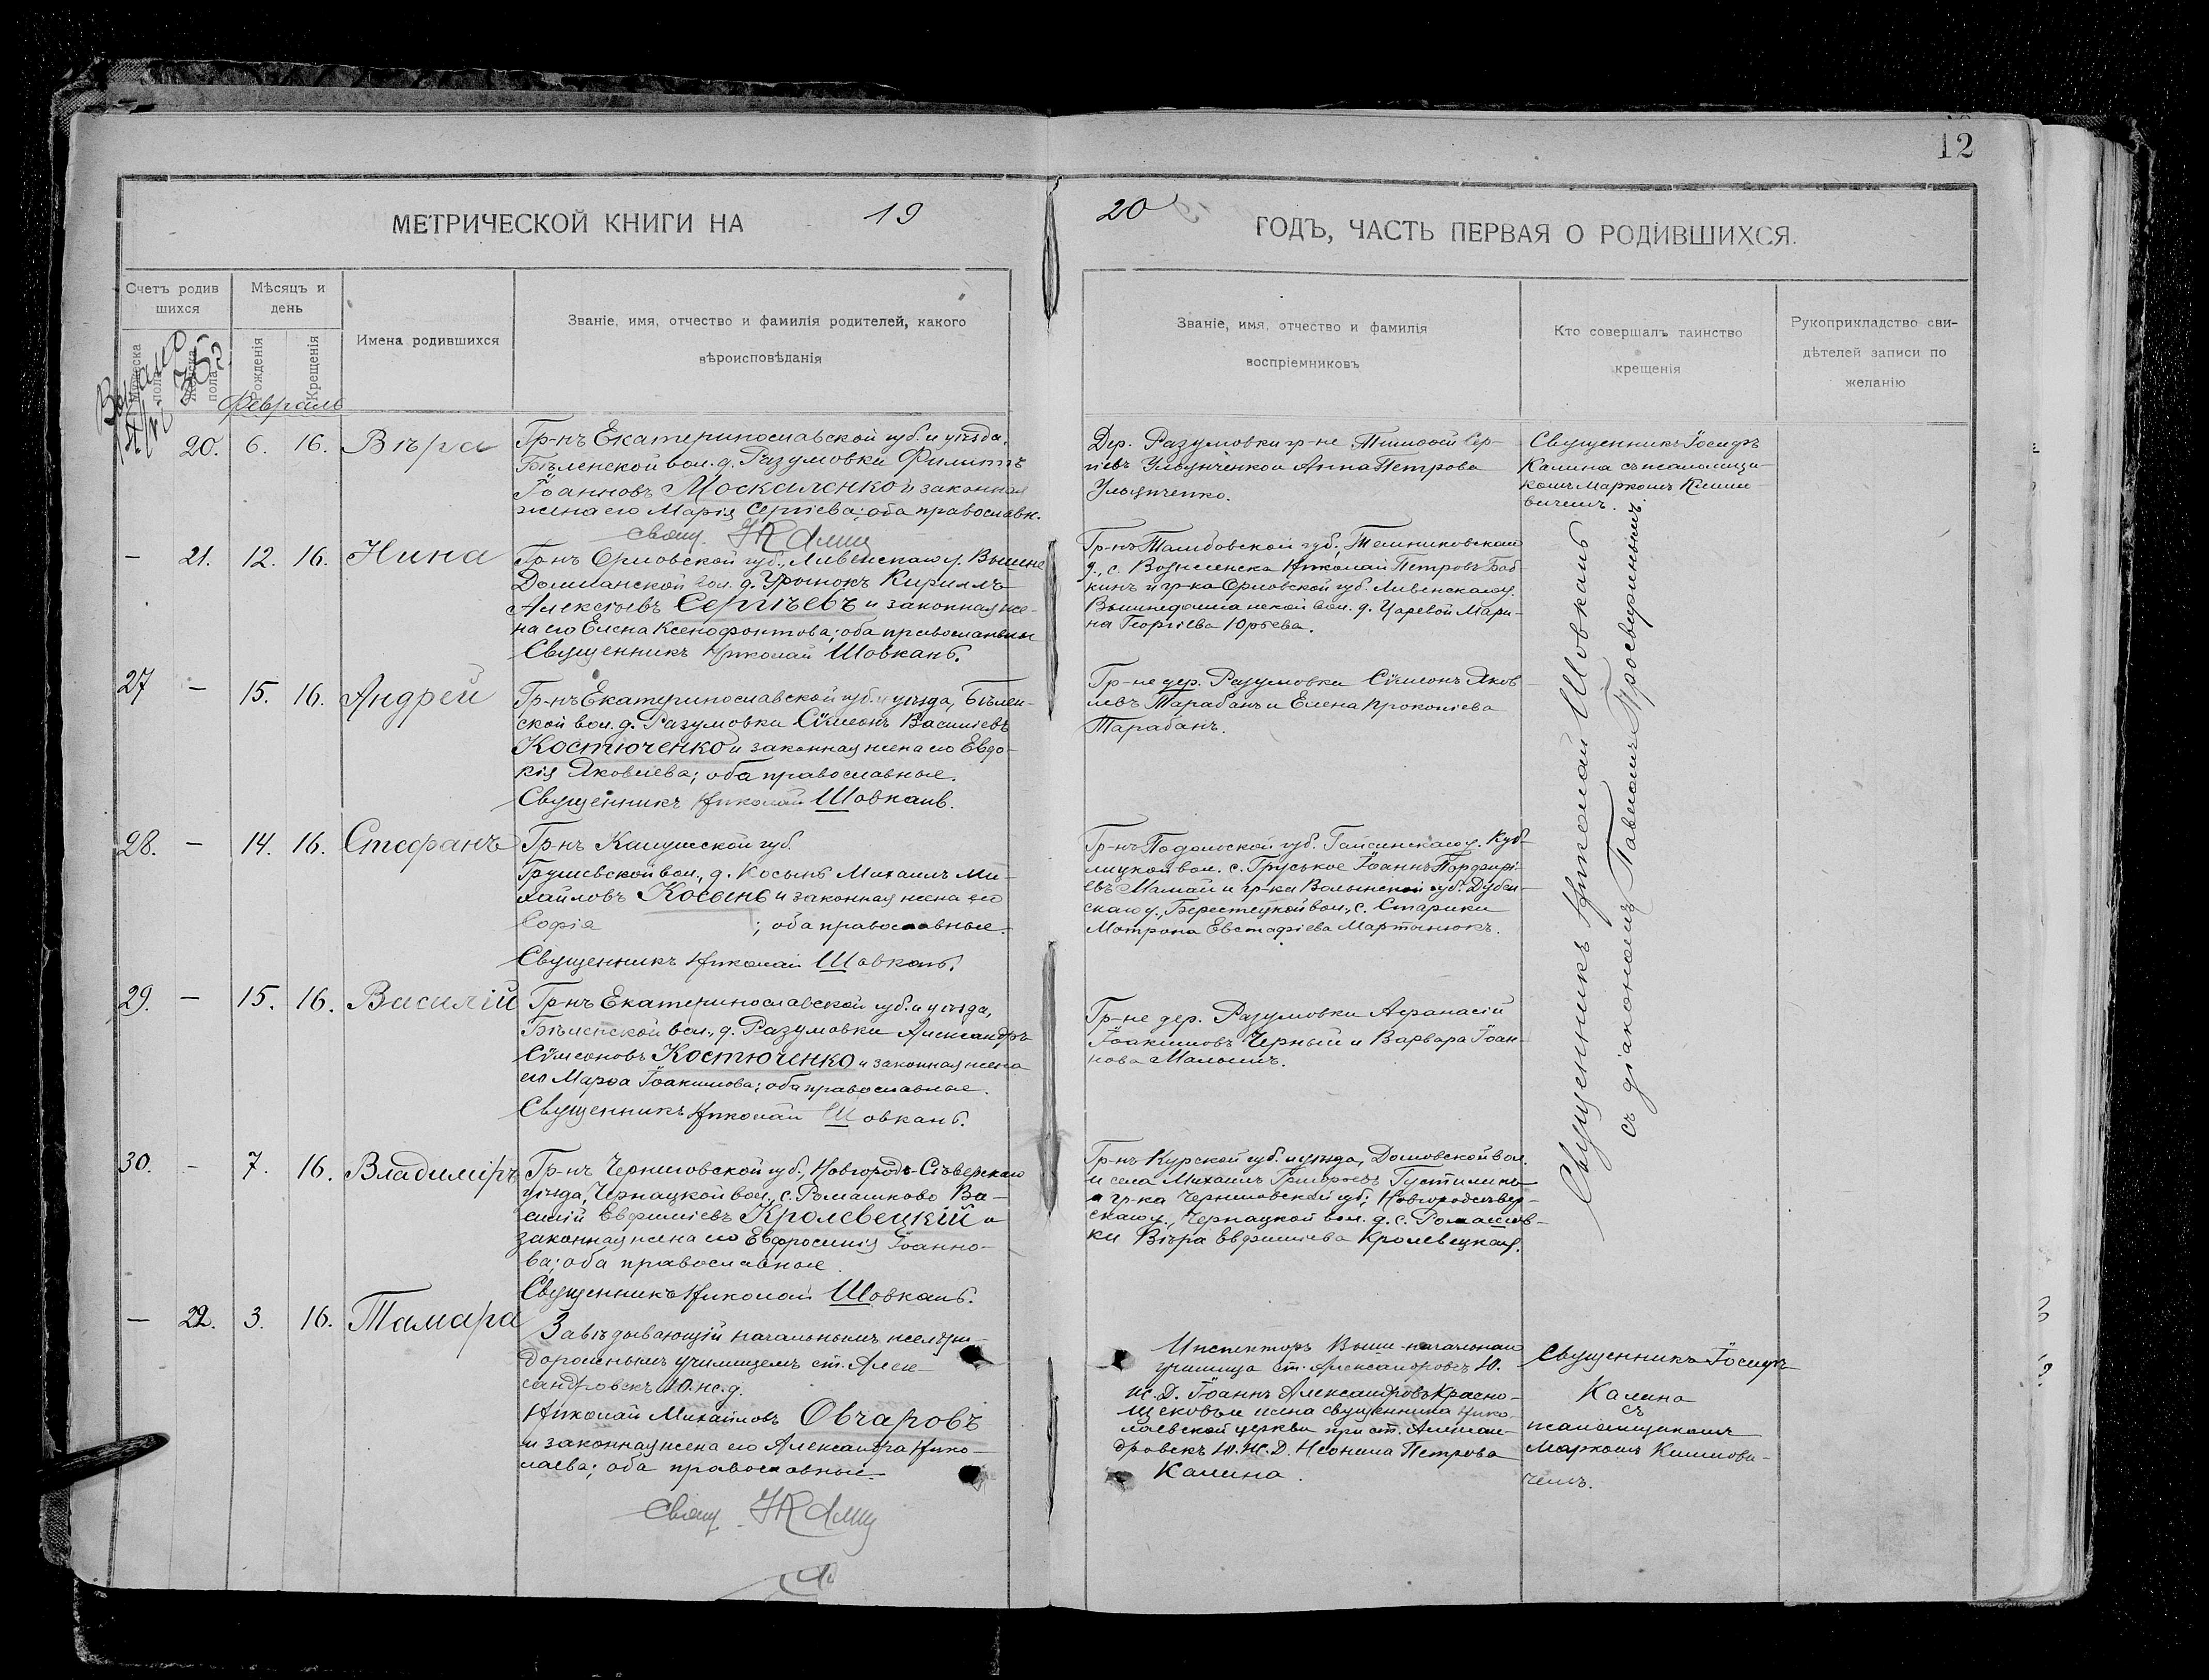 12
МЕТРИЧЕСКОЙ КНИГИ НА 19
20 ГОДЪ, ЧАСТЬ ПЕРВАЯ О РОДИВШИХСЯ.
Счетъ родив
шихся
Мужеска
пола
Женска
пола
Мѣсяцъ и
день
Рожденія
Крещенія
Имена родившихся
Званіе, имя, отчество и фамилія родителей, какого
вѣроисповѣданія
Званіе, имя, отчество и фамилія
воспріемниковъ
Кто совершалъ таинство
крещенія
Рукоприкладство сви-
дѣтелей записи по
желанію
Февраль
20. 6. 16. Вѣра
Гр-нъ Екатеринославской губ. и уѣзда,
Бѣленской вол. д. Разумовки Филиппъ
Іоанновъ Москаленко и законная
жена его Марія Сергіева; оба православн.
Свящ.
Дер. Разумовки гр-не Тимофей Сер-
гіевъ Ульянченко и Анна Петрова
Ульянченко.
Священникъ Іосифъ
Калина съ псаломщи-
комъ Маркомъ Климо-
вичемъ.
— 21. 12. 16. Нина
Гр-нъ Орловской губ., Ливенскаго у. Вышне
Долманской вол. д. Урынокъ Кириллъ
Алексѣевъ Сергѣевъ и законная же-
на его Елена Ксенофонтова; оба православны
Священникъ Николай Шовкань.
Гр-нъ Тамбовской губ., Темниковскаго
у., с. Вознсенска Николай Петровъ Баб-
кинъ и гр-ка Орловской губ. Ливенскаго у.
Вышнедолманской вол. д. Царевой Мари-
на Георгіева Юрьева.
Священникъ Николай Шовкань
съ діакономъ Павломъ Просвериннымъ.
27 — 15. 16. Андрей
Гр-нъ Екатеринославской губ. и уѣзда, Бѣлен-
ской вол. д. Разумовки Сѵмеонъ Василіевъ
Костюченко и законная жена его Евдо-
кія Яковлева; оба православные.
Священникъ Николай Шовкань.
Гр-не дер. Разумовки Сѵмеонъ Яков-
левъ Тарабанъ и Елена Прокопіева
Тарабанъ.
28. — 14. 16. Стефанъ
Гр-нъ Калушской губ.
Грушевской вол., д. Косынь Михаилъ Ми-
хайловъ Косынь и законная жена его
Софія ; оба православные.
Священникъ Николай Шовкань.
Гр-нъ Подольской губ. Гайсинскаго у. Куб-
лицкой вол. с. Груськое Іоаннъ Порфирі-
евъ Мамай и гр-ка Волынской губ. Дубен-
скаго у., Берестецкой вол., с. Старики
Мотрона Евстафіева Мартынюкъ.
29. — 15. 16. Василій
Гр-нъ Екатеринославской губ. и уѣзда,
Бѣленской вол., д. Разумовки Александръ
Сѵмеоновъ Костюченко и законная жена
его Марфа Іоакимова; оба православные.
Священникъ Николай Шовкань.
Гр-не дер. Разумовки Афанасій
Іоакимовъ Черный и Варвара Іоан-
нова
30. — 7. 16. Владиміръ
Гр-нъ Черниговской губ., Новгородъ-Сѣверскаго
уѣзда, Чернацкой вол., с. Ромашково Ва-
силій Евфиміевъ Кролевецкій и
законная жена его Евфросинія Іоанно-
ва; оба православные.
Священникъ Николай Шовкань.
Гр-нъ Курской губ. и уѣзда, вол.
и села Михаилъ Григорьевъ
и гр-ка Черниговской губ., Новгородсѣвер-
скаго у., Чернацкой вол. д. с. Ромашков-
ки Вѣра Евфиміева Кролевецкая.
— 22. 3. 16. Тамара
Завѣдывающій начальнымъ желѣзно-
дорожнымъ училищемъ ст. Алек-
сандровскъ Ю. ж. д.
Николай Михайловъ Овчаровъ
и законная жена его Александра Нико-
лаева; оба православные.
Свящ.
Инспекторъ Высш.-начальнаго
училища ст. Александровскъ Ю.
Ж. Д. Іоаннъ Александровъ Красно-
щековъ и жена священника Нико-
лаевской церкви при ст. Алексан-
дровскъ Ю. Ж. Д. Неонила Петрова
Калина.
Священникъ Іосифъ
Калина
съ
псаломщикомъ
Маркомъ Климови-
чемъ.